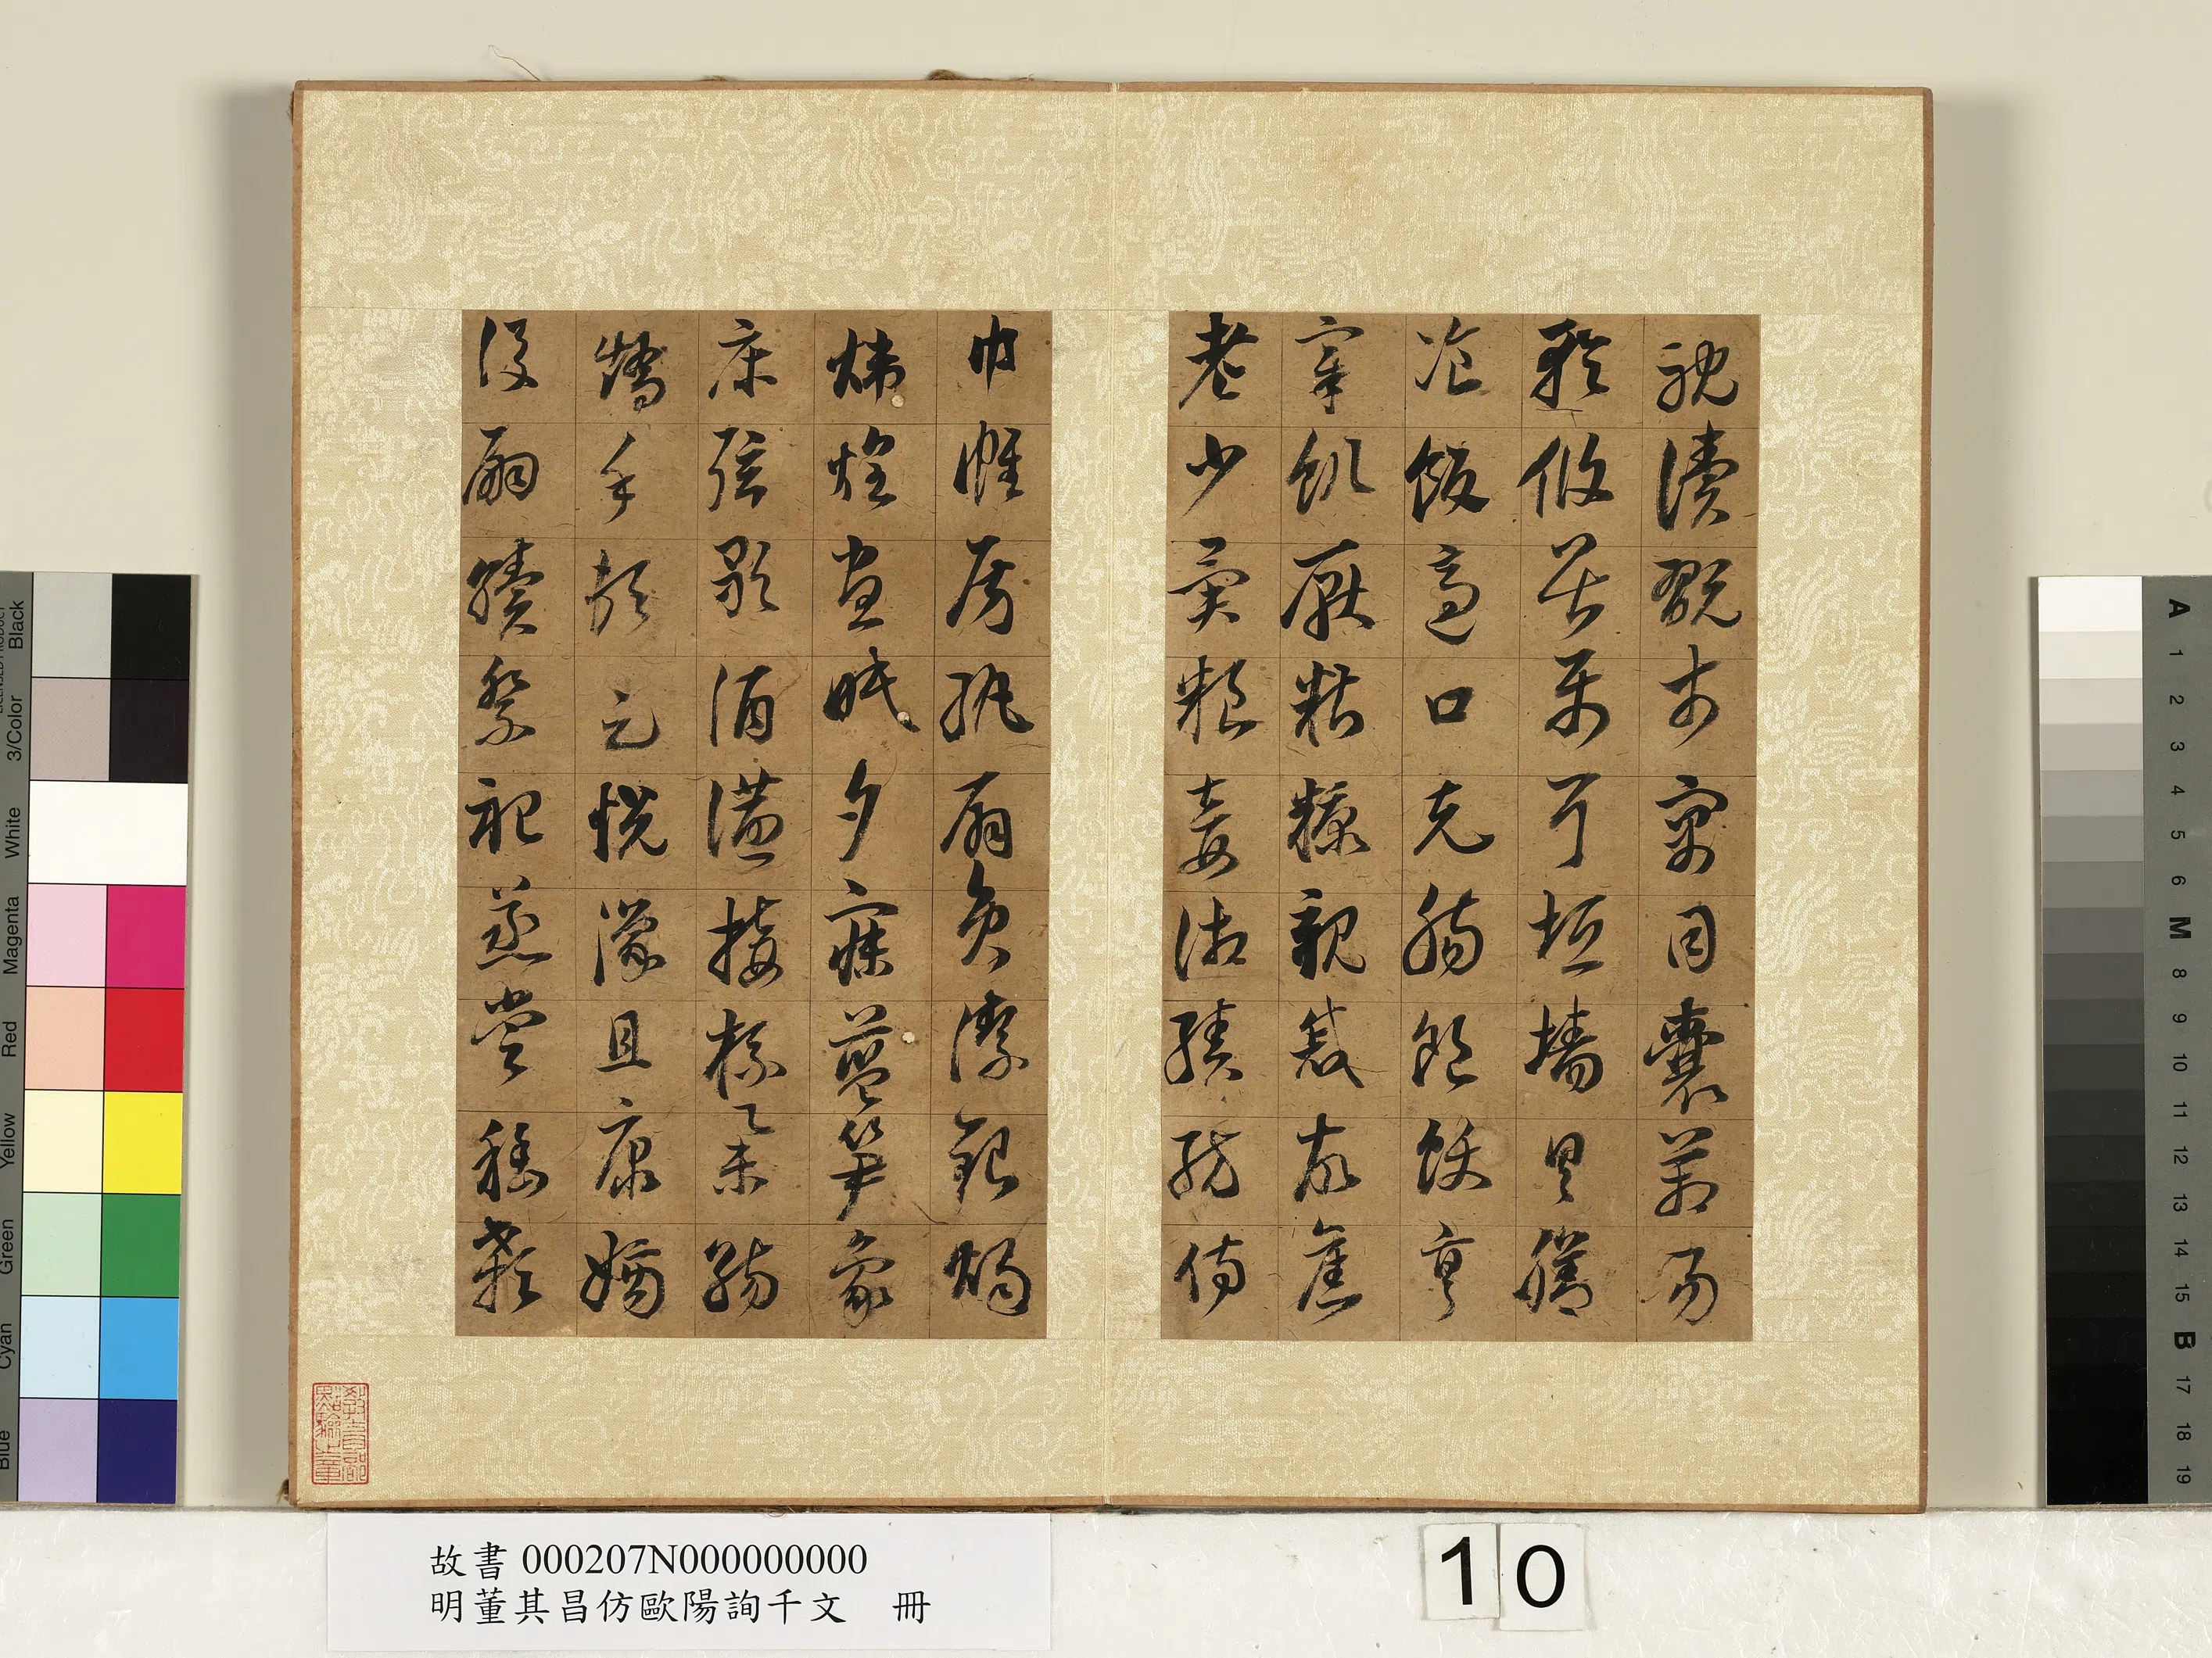 耽讀翫市寓目囊箱易
輶攸畏屬耳垣墻具膳
飡飯適口充腸飽飫烹
宰飢厭糟糠親戚故舊
老少異粮妾御績紡侍
巾帷房紈扇員潔銀燭
煒煌晝眠夕寐藍笋象
床弦歌酒讌接杯舉觴
矯手頓足悦豫且康嫡
後嗣續祭祀蒸嘗稽顙
教育部點驗之章
故書 000207N000000000
明董其昌仿歐陽詢千文 冊
10
Black
3/Color
White
Magenta
Red
Yellow
Green
Cyan
Blue
A
1
2
3
4
5
6
M
8
9
10
11
12
13
14
15
B
17
18
19